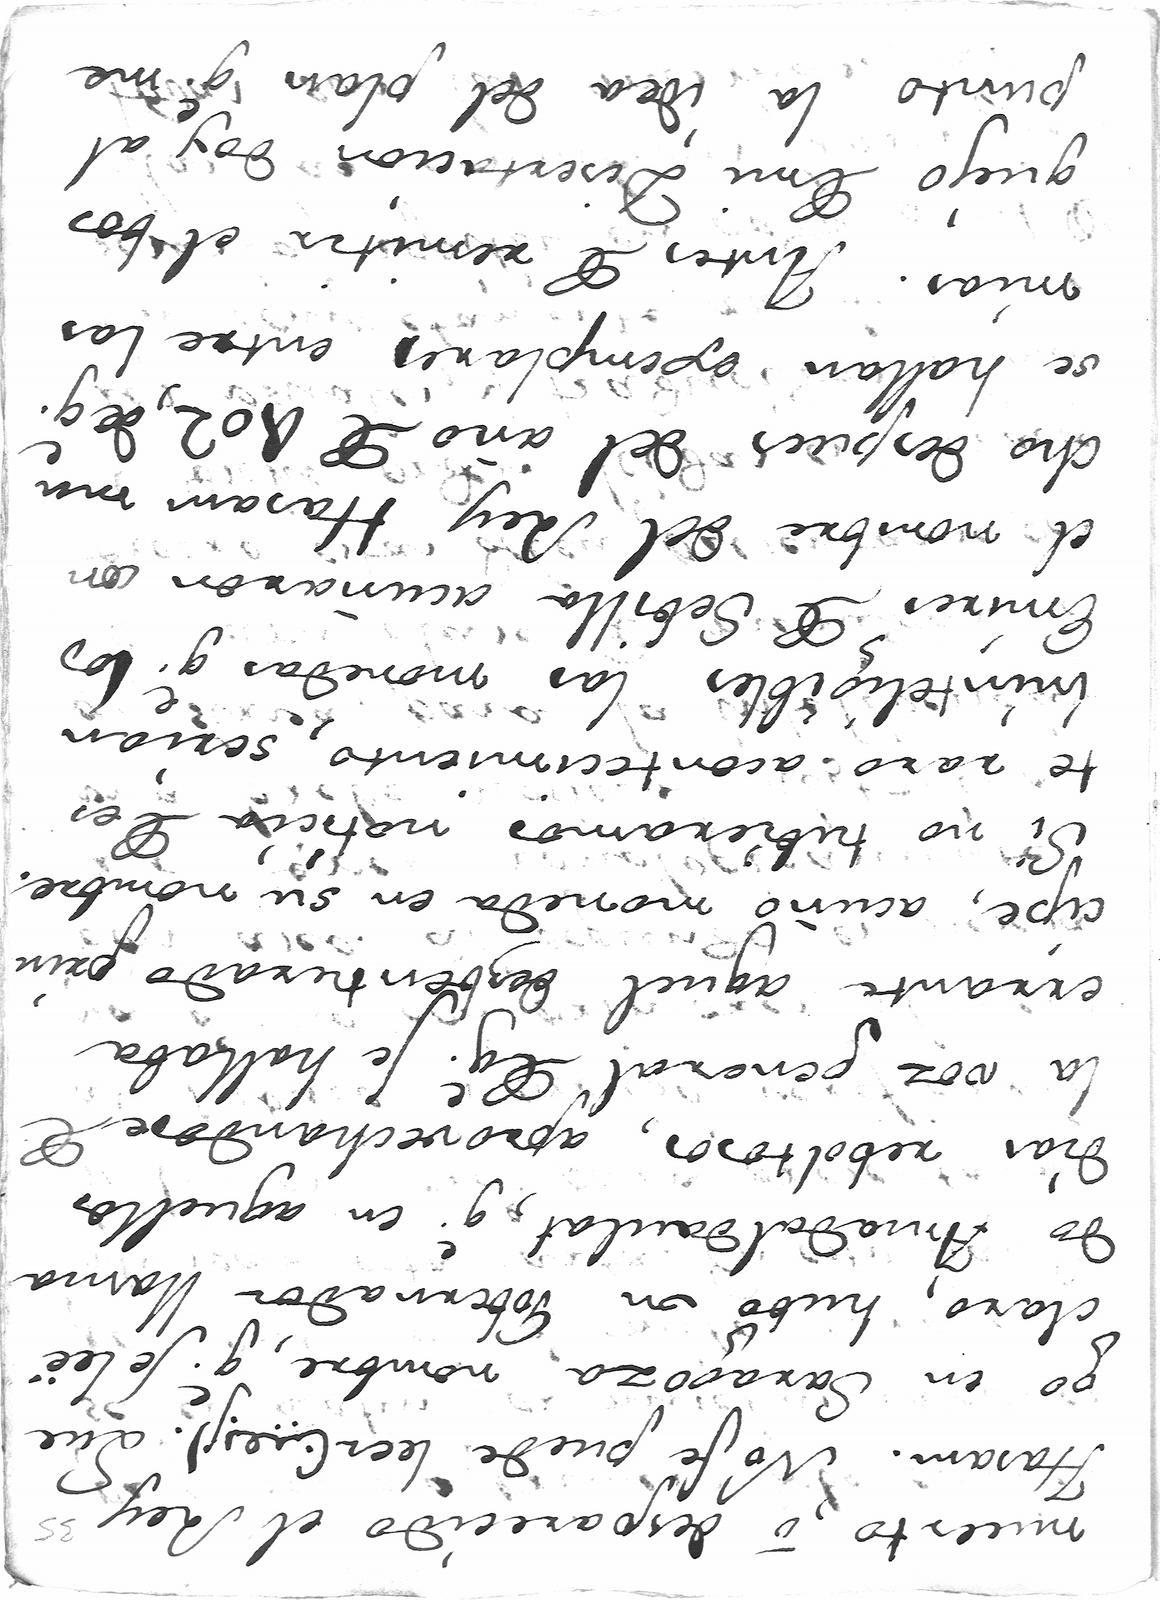 35
muerto, ò desparecido el Rey
Hasam. No se puede leer Que
go en Saragoza, nombre, q.e se leé
claro, hubo un Gobernador llama
do Amadaldaulat, q.e en aquellos
dias reboltosos, aprovechandose de
la voz general de q.e se hallaba
errante aquel desbenturado prin
cipe, acuñó moneda en su nombre.
Si no tubieramos noticia de es
te raro acontecimiento, serian
ininteligibles las monedas q.e los
Emires de Sebilla acuñaron con
el nombre del Rey Hasam mu
cho despues del año de 402, de q.e
se hallan exemplares entre las
mias. Antes de remitir el bos
quejo de mi Disertacion doy al
punto la idea del plan q.e me